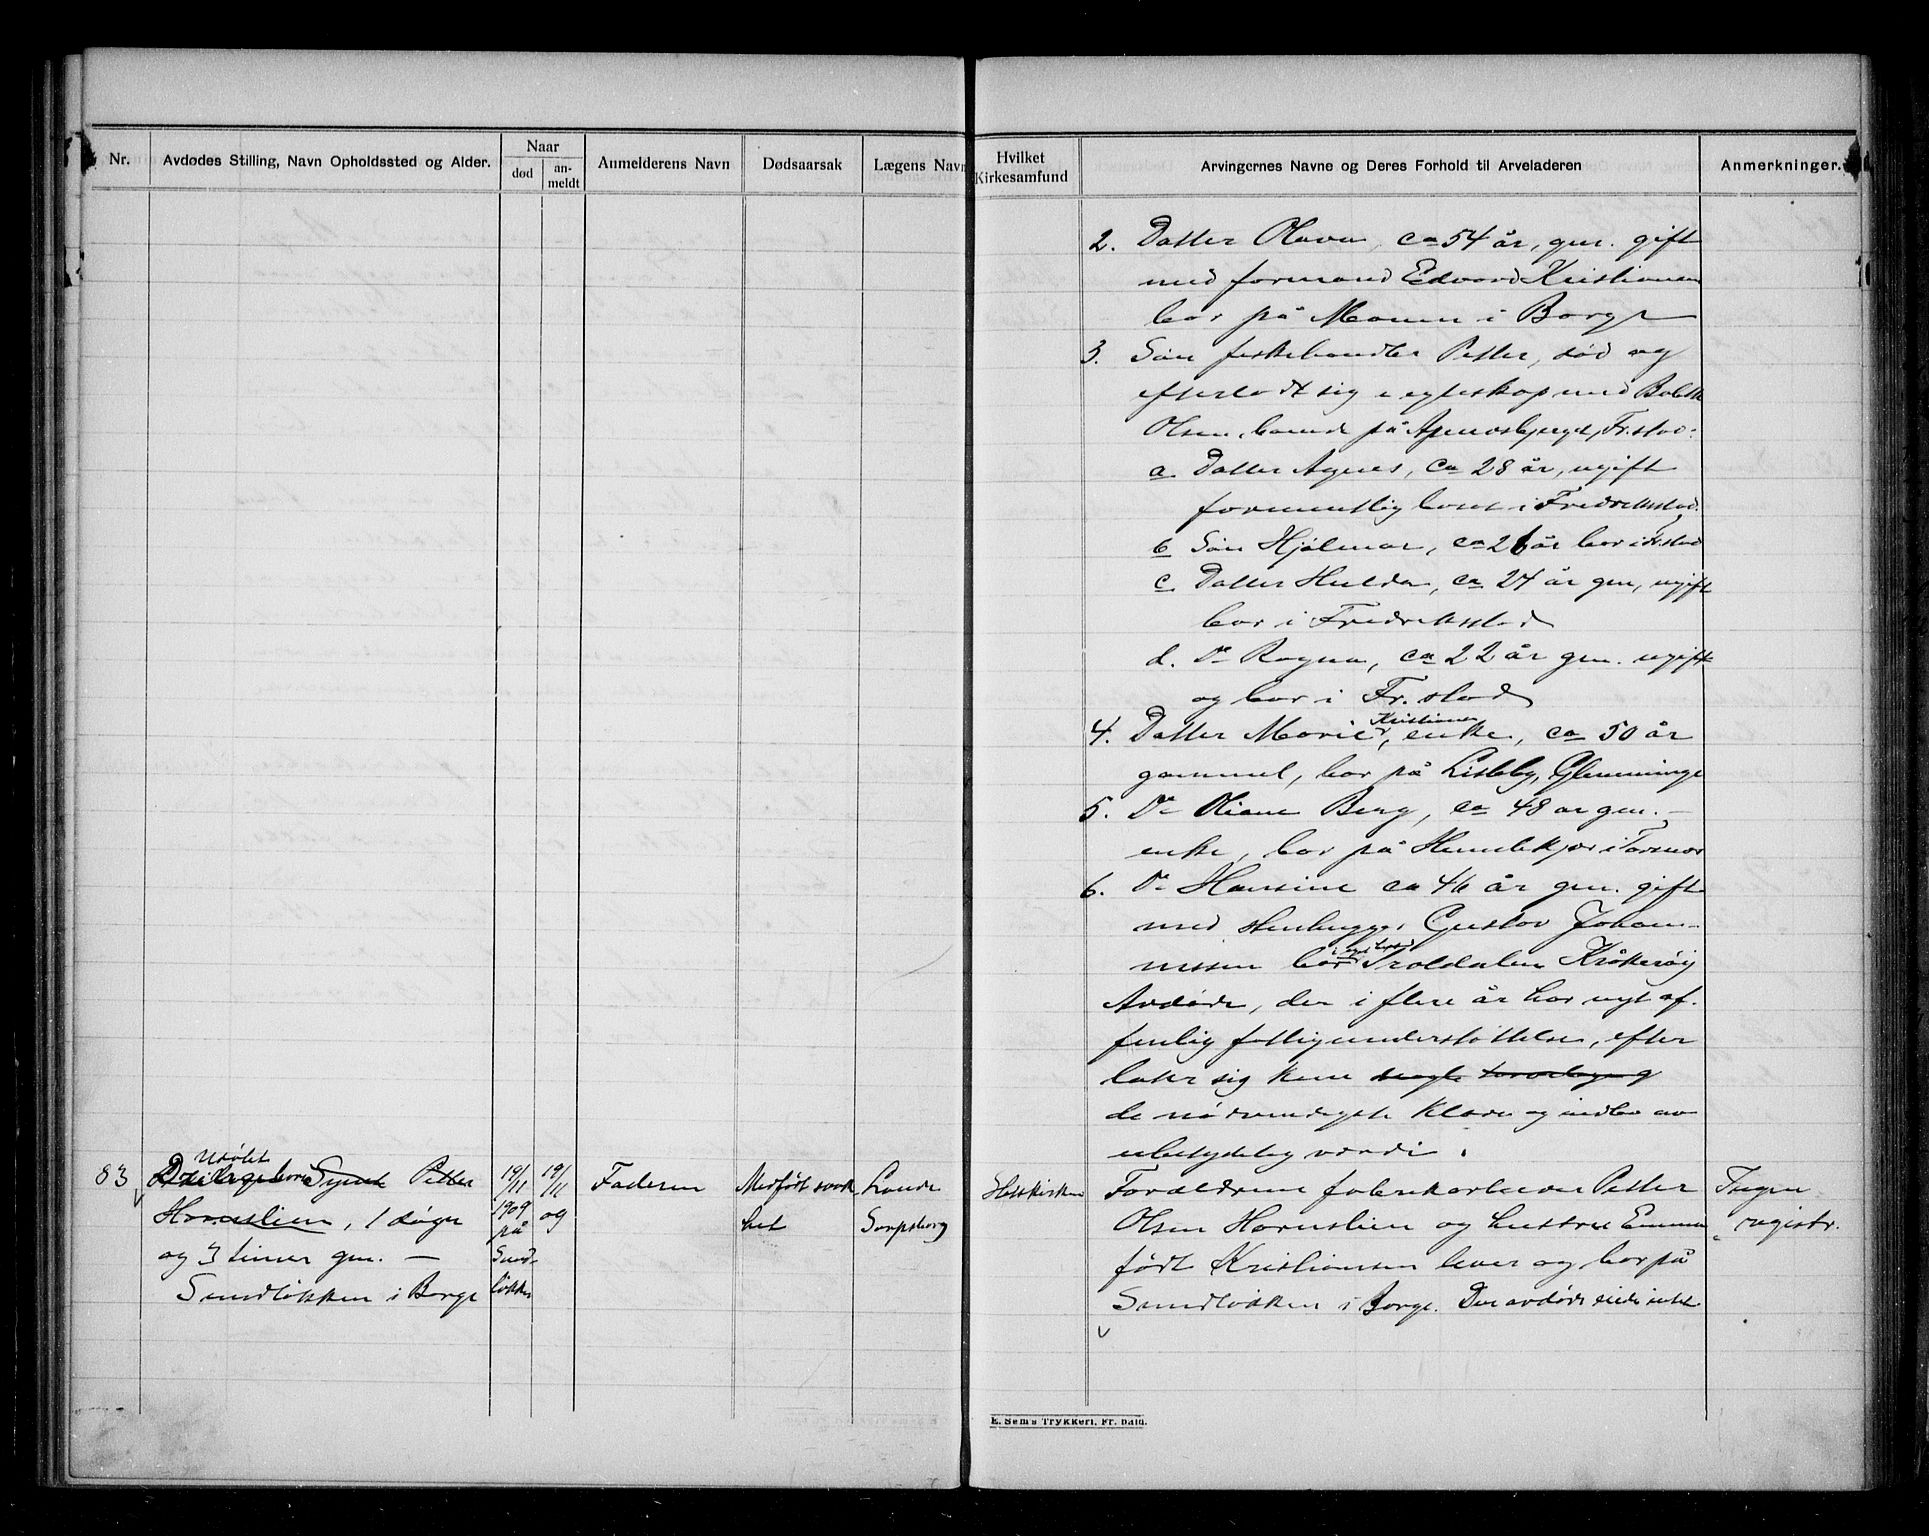 Nr.
Avdødes Stilling, Navn Opholdssted og Alder.
Naar
død
an-
meldt
Anmelderens Navn
Dødsaarsak
Lægens Navn
Hvilket
Kirkesamfund
Arvingernes Navne og Deres Forhold til Arveladeren
Anmerkninger.
2. Datter Olava, ca 54 år, gm. gift
med formand Edvard Kristiansen
bor på Moum i Borge
3. Søn fiskehandler Petter, død og
efterlodt sig i egteskap med Bolette
Olsen, boende på Apenesbjerget, Fr.stad:
a Datter Agnes, ca 28 år, ugift
formentlig boset i Fredriksstad.
b Søn Hjalmar, ca 26 år bor i Fr.stad
c Datter Hulda, ca 24 år gm, ugift
bor i Fredriksstad
d. Do Ragna, ca 22 år gm. ugift
og bor i Fr.stad
4. Datter Marie Kristiansen, enke, ca 50 år
gammel, bor på Lisleby, Glemminge
5. Do Oliane Berg, ca 48 år gm. —
enke, bor på i Torsnes
6. Do Hansine ca 46 år gm. gift
med stenhugger Gustav Johan-
nessen bor Troldalen Kråkerøy
Avdøde, der i flere år har nyt of-
fentlig fattigunderstøttelse, efter
later sig kun
de nødvendigste klær og indbo av
ubetydelig værdi.
83
Udøbt
Petter
Hornslien, 1 døgn
og 3 timer gm. —
Sundløkken i Borge
19/11
1909
på
Sund-
løkken
19/11
og
Faderen
Medfødt svak
het
Lande
Sarpsborg
Statskirken
Forældrene fabrikarbeider Petter
Olsen Hornslien og hustru Emma
født Kristiansen lever og bor på
Sundløkken i Borge. Den avdøde eiede intet
Ingen
registr.
E. Sems Trykkeri, Fr. hald.